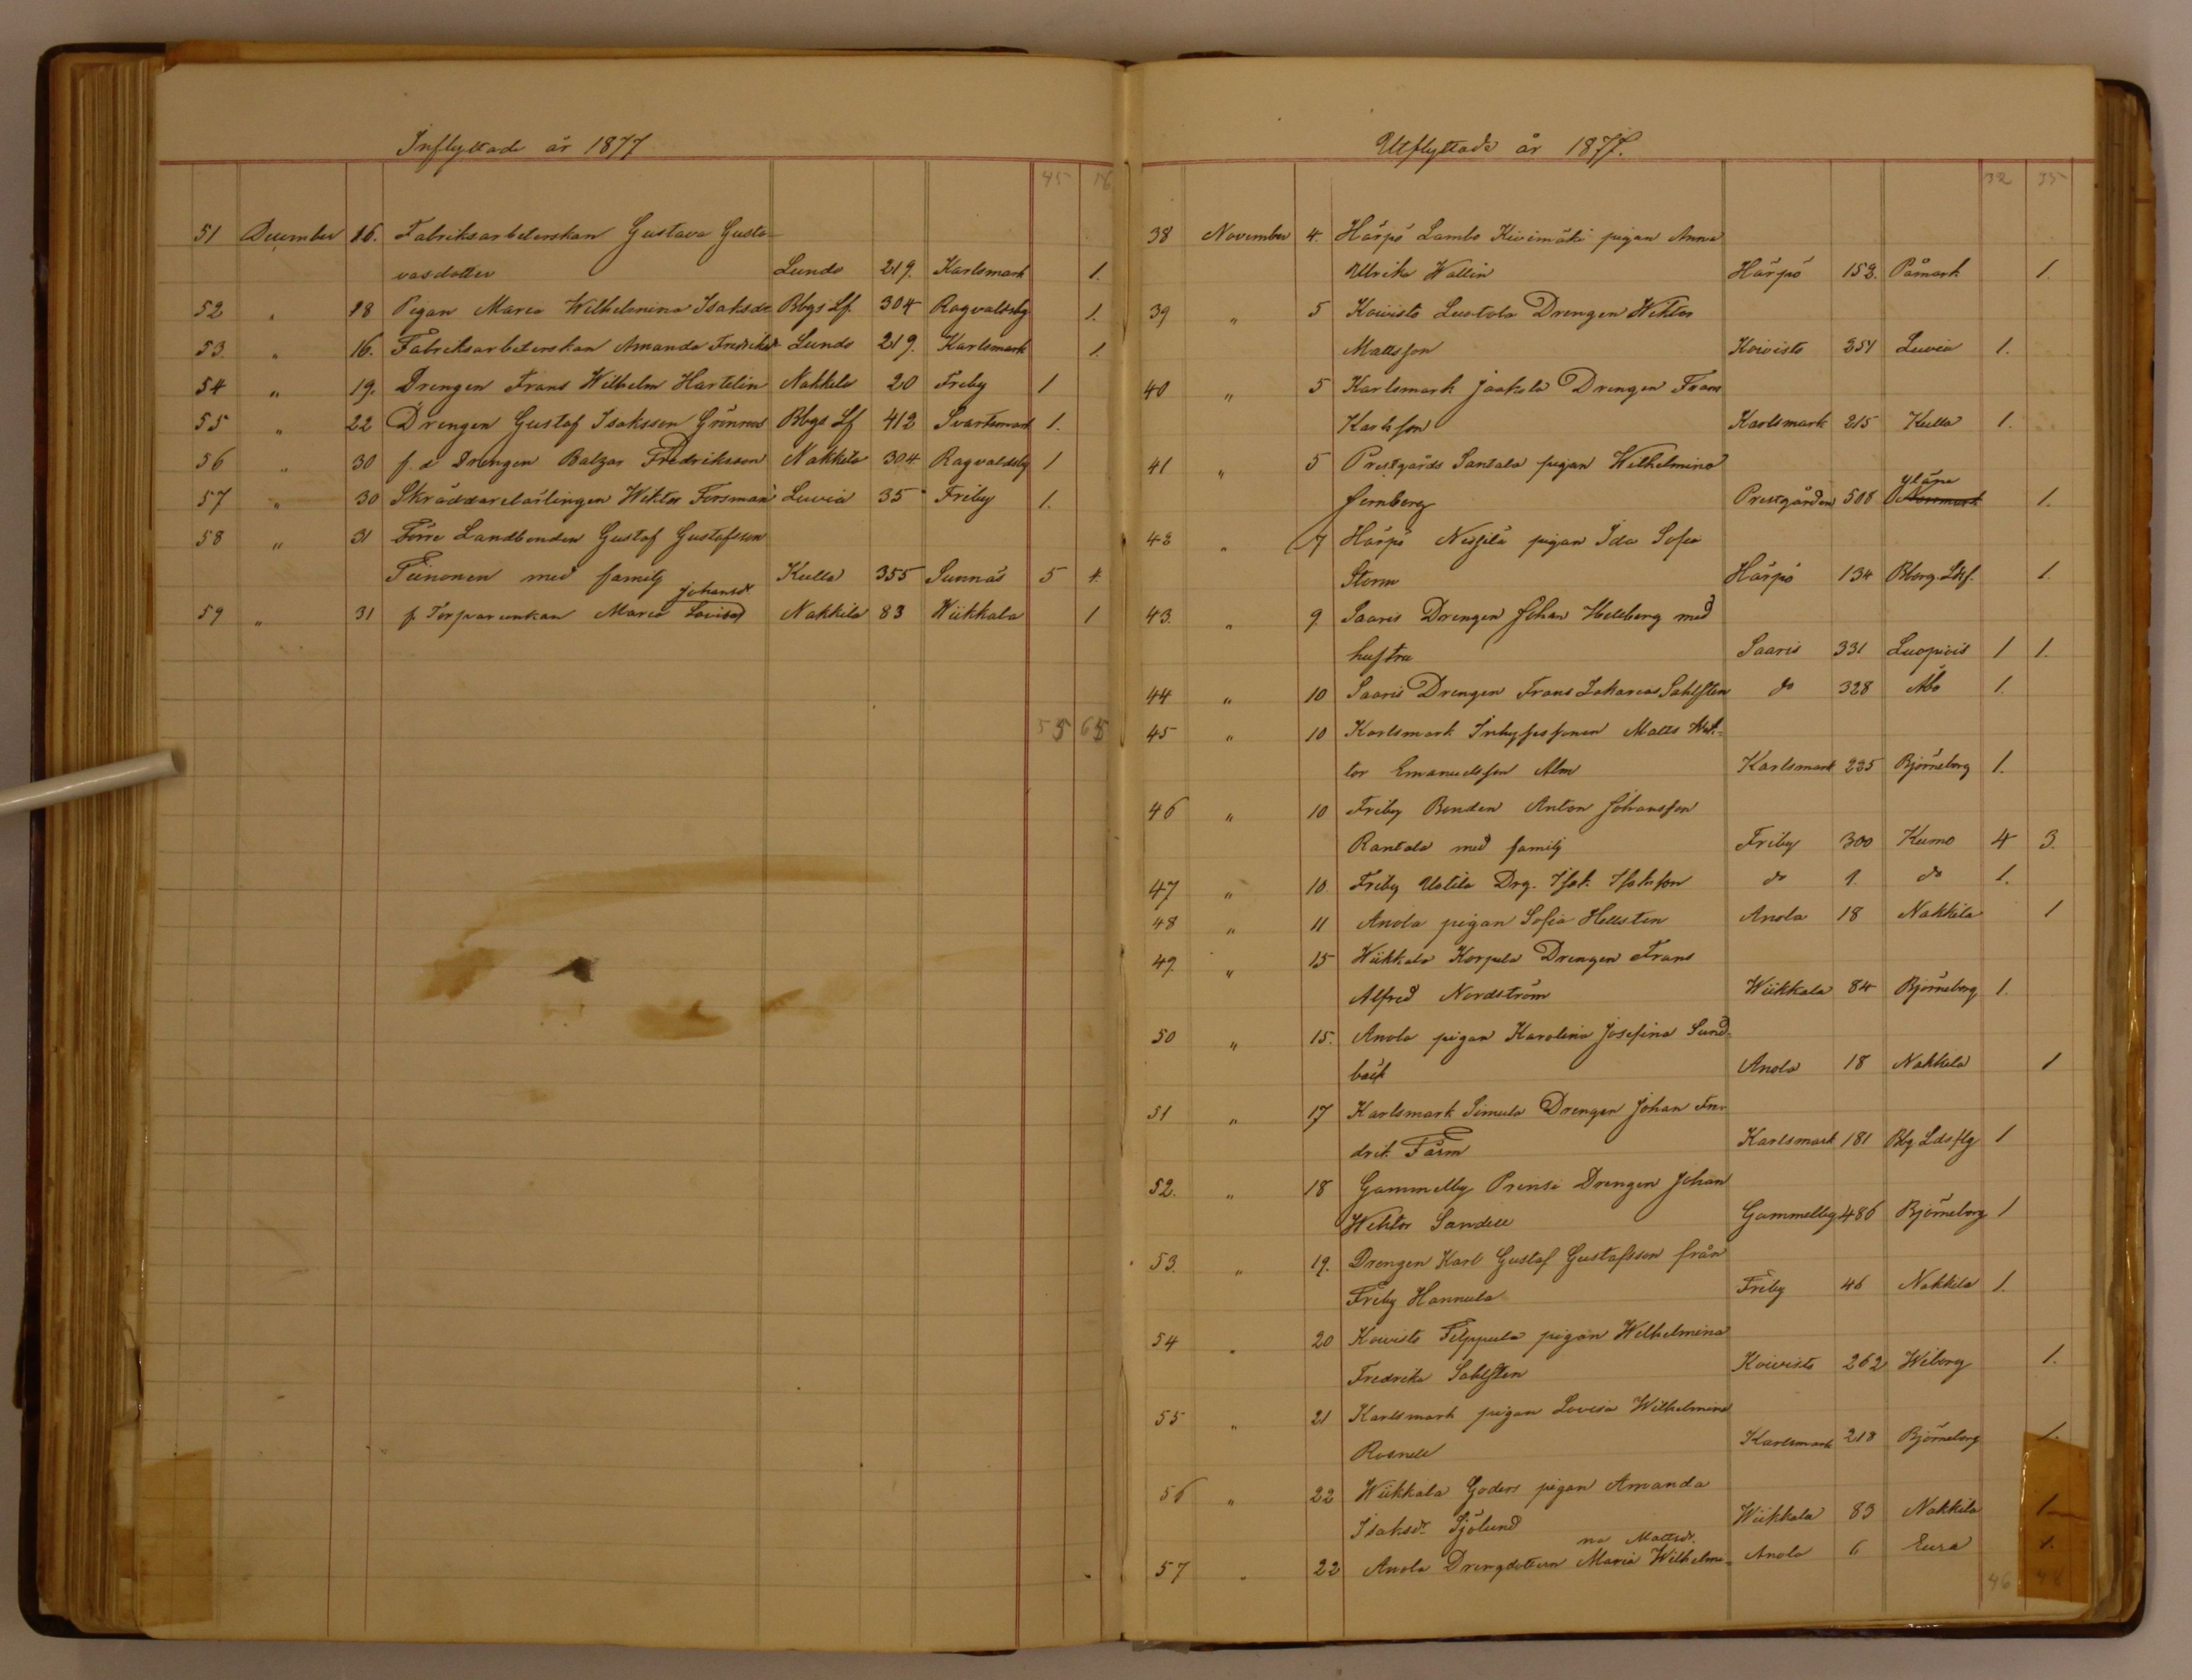 Inflyttade år 1877
45 56
51 December 16. Fabriksarbeterskan Gustava Gusta-
vasdotter Lundo 219. Karlsmark 1.
52 „ 18 Pigan Maria Wilhelmina Isaksdr Bbgs Lf. 304 Ragvaldsby 1.
53 „ 16. Fabriksarbeterskan Amanda Fredriksdr Lundo 219. Karlsmark 1.
54 „ 19. Drengen Frans Wilhelm Hartelin Nakkila 20 Friby 1
55 „ 22 Drengen Gustaf Isaksson Grönroos Bbgs Lf 412 Svartsmark 1.
56 „ 30 f. d Drengen Balzar Fredriksson Nakkila 304 Ragvaldsby 1
57 „ 30 Skräddarelärlingen Wiktor Forsman Luvia 35 Friby 1.
58 „ 31 Förre Landbonden Gustaf Gustafsson
Tiinonen med familj Kulla 355 Sunnäs 5 4.
59 „ 31 f. Torparenkan Maria Lovisa Johansdr Nakkila 83 Wiikkala 1
55 65
Utflyttade år 1877.
32 35
38 November 4. Härpö Lambo Kivimäki pigan Anna
Ulrika Wallin Härpö 152. Påmark 1.
39 „ 5 Koivisto Luotola Drengen Wiktor
Mattsson Koivisto 251 Luvia 1.
40 „ 5 Karlsmark Jaakola Drengen Frans
Karlsson Karlsmark 215 Kulla 1.
41 „ 5 Prestgårds Santala pigan Wilhelmina
Jernberg Prestgården 508 Yläne 1.
42 „ 7 Härpö Nissilä pigan Ida Sofia
Storm Härpö 134 Bborg. Ldsf. 1.
43. „ 9. Saaris Drengen Johan Hellberg med
hustru Saaris 331 Luopiois 1 1.
44 „ 10 Saaris Drengen Frans Zakarias Sahlsten do 328 Åbo 1.
45 „ 10 Karlsmark Inhysessonen Matts Wik-
tor Emanuelsson Alm Karlsmark 225 Björneborg 1.
46 „ 10 Friby Bonden Anton Johansson
Rantala med familj Friby 300 Kumo 4 3.
47 „ 10 Friby Uotila Drg. Isak Isaksson do 1. do 1.
48 „ 11 Anola pigan Sofia Hellsten Anola 18 Nakkila 1
49. „ 15 Wiikkala Korpela Drengen Frans
Alfred Nordström Wiikkala 84 Björneborg 1.
50 „ 15. Anola pigan Karolina Josefina Sund-
bäck Anola 18 Nakkila 1
51 „ 17 Karlsmark Simula Drengen Johan Fre-
drik Färm Karlsmark 181 Bbg Ldsflg 1
52. „ 18 Gammelby Prensi Drengen Johan
Wiktor Sandell Gammelby 486 Björneborg 1
53. „ 19. Drengen Karl Gustaf Gustafsson från
Friby Hannula Friby 46 Nakkila 1.
54 „ 20 Koivisto Filppula pigan Wilhelmina
Fredrika Sahlsten Koivisto 262 Wiborg 1.
55 „ 21 Karlsmark pigan Lovisa Wilhelmina
Rosnell Karlsmark 218 Björneborg 1.
56 „ 22 Wiikkala Goders pigan Amanda
Isaksdr. Sjölund Wiikkala 83 Nakkila 1
57 „ 22 Anola Drengdottern Maria Wilhelmi- na Mattsdr. Anola 6 Eura 1.
46 48